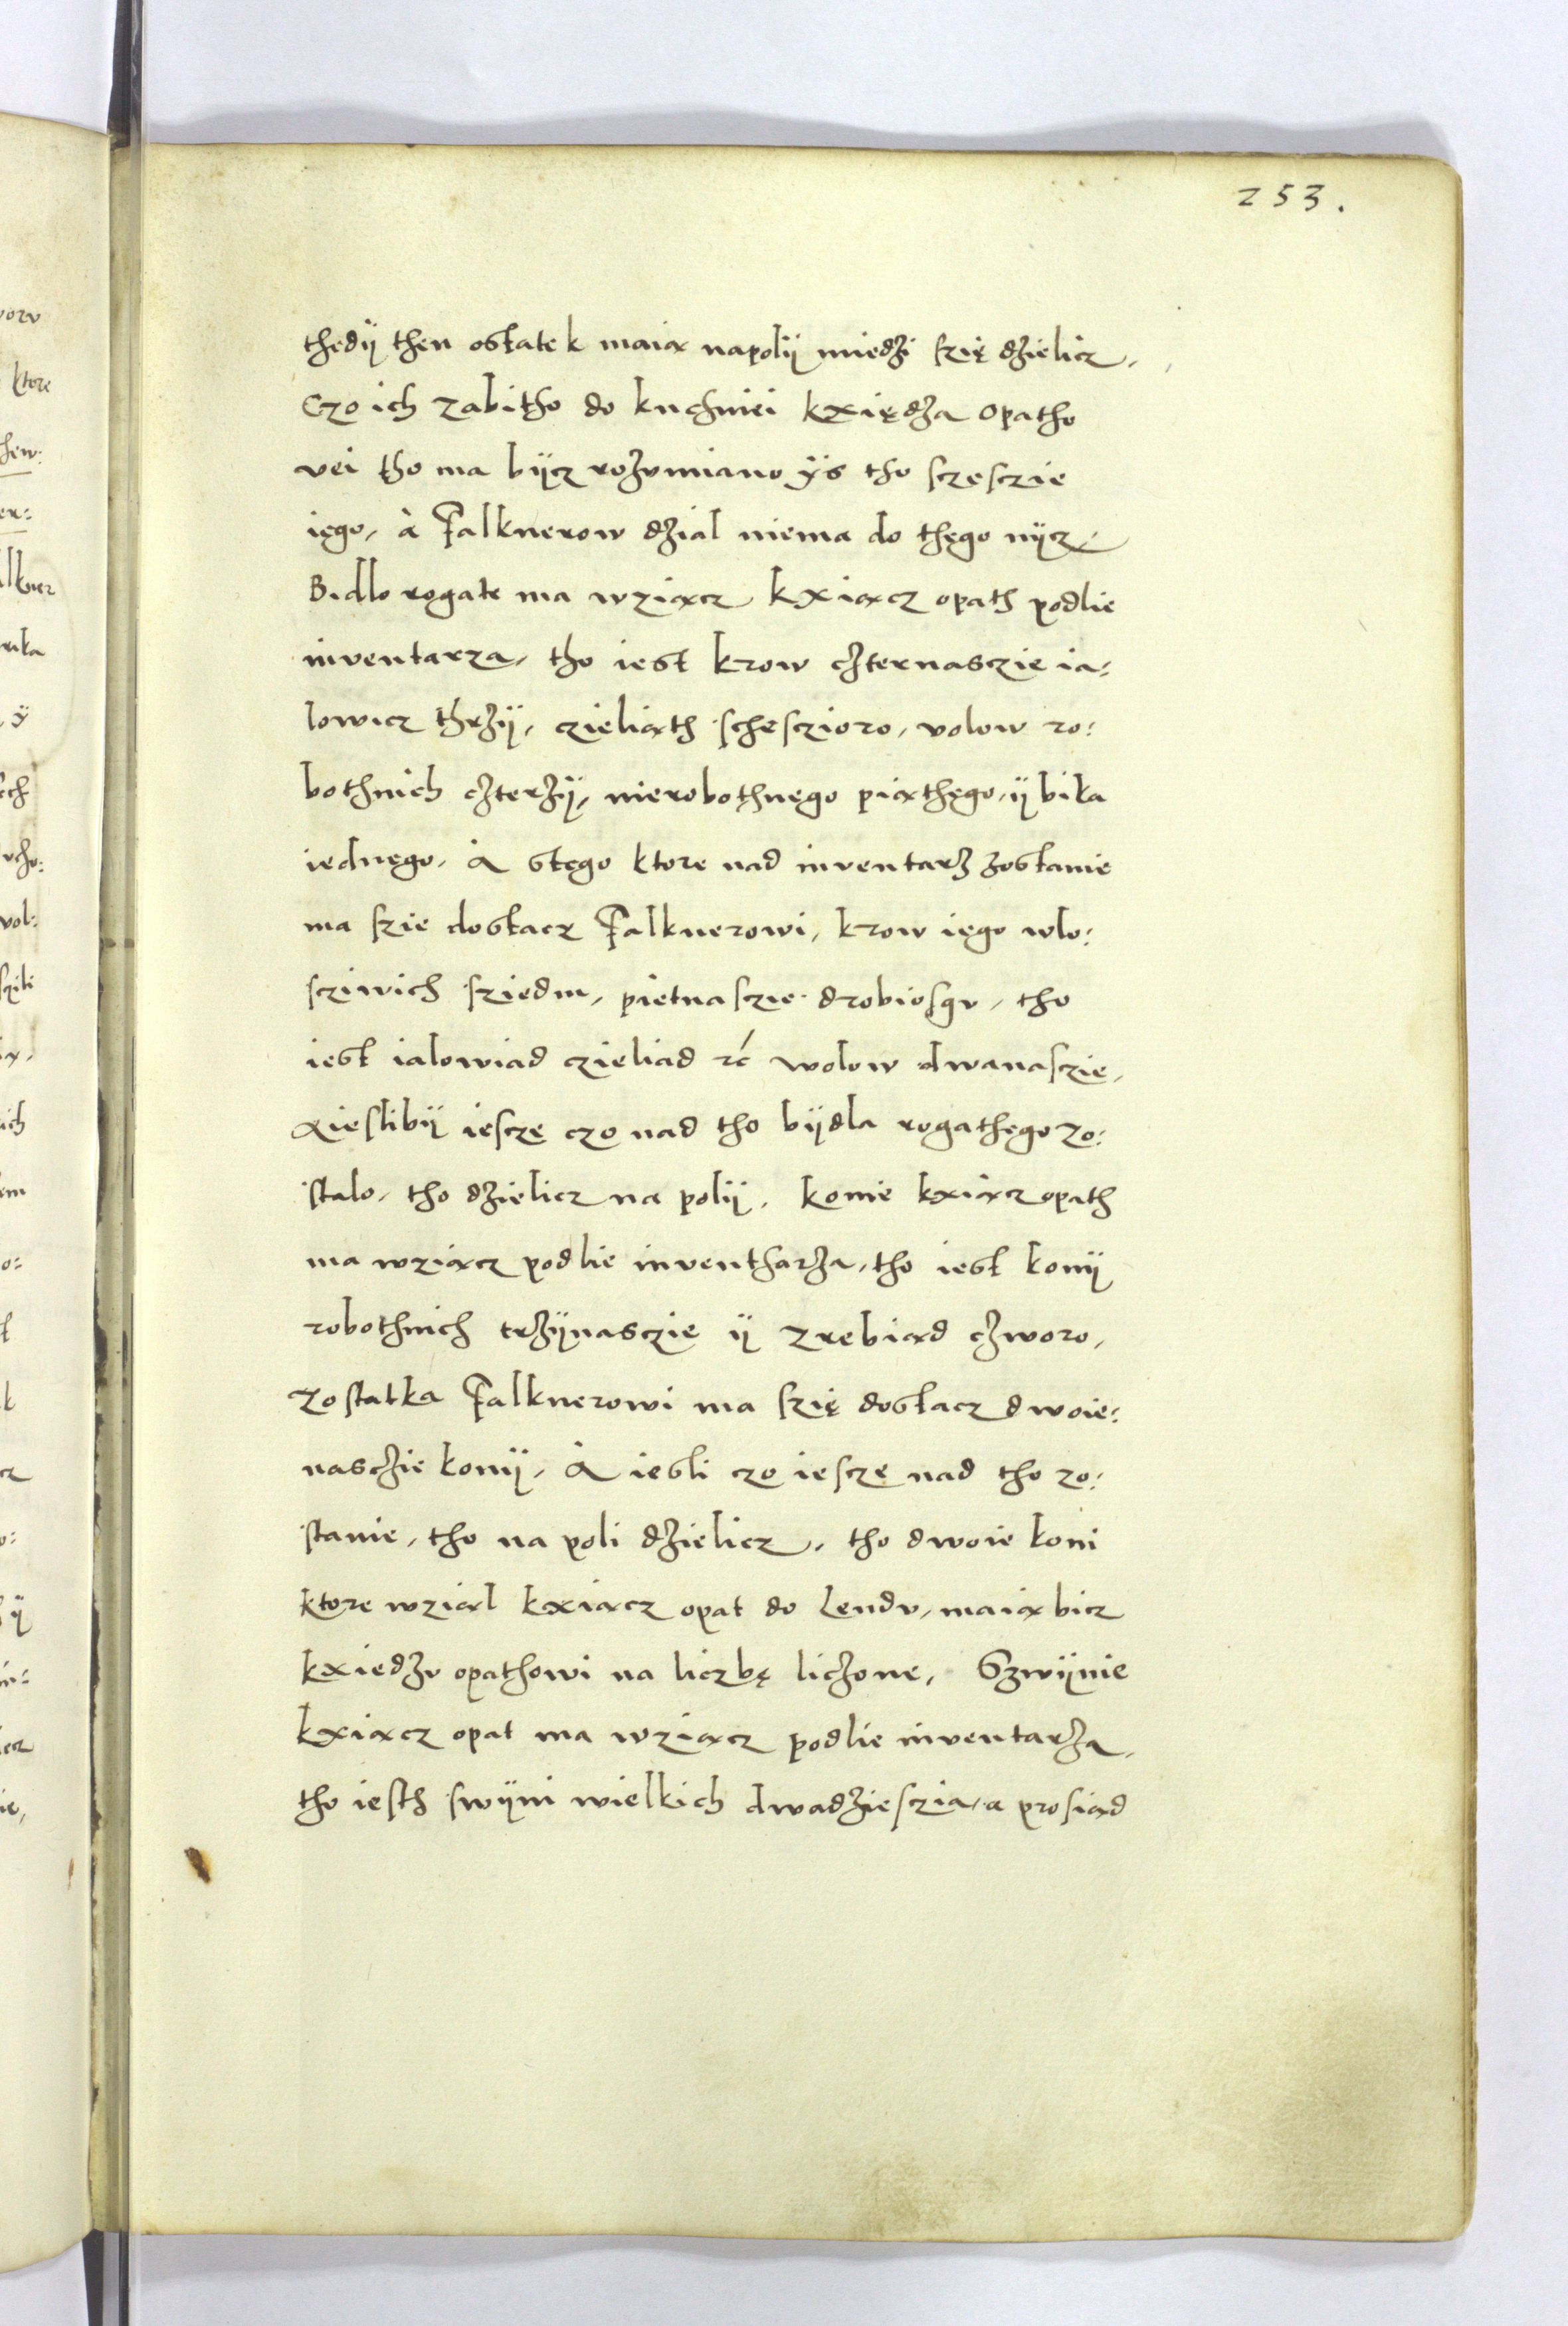 253.
thedÿ then ostatek maią napolÿ miedżi szię dżielicz,
Czo ich zabitho do kuchniei kxiędża opatho
vei tho ma bÿcz rożvmiano ÿs tho sczęsczie
iego, à Falknerow dżial niema do thęgo nÿcz,
Bidlo rogate ma wziącz kxiącz opath podlie
inventarza, tho iest krow czternasczie ia:
lowicz thrżÿ, czieliąth schesczioro, volow ro:
bothnich czterżÿ, nierobothnęgo piąthęgo, ÿ bika
iednęgo, à stęgo ktore nad inventarż żostanie
ma szie dostacz Falknerowi, krow ięgo wlo:
scziwich sziedm, pietnasczie drobiosqv, tho
iest ialowiad czieliad rć wolow dwanasczie,
A ieslibÿ iesczę czo nad tho bÿdla rogathęgo zo:
stalo, tho dżielicz na polÿ, konie kxiącz opath
ma wziącz podlie inventharża, tho iest konÿ
robothnich trżÿnasczie ÿ zrebiąd czworo,
zostatka Falknerowi ma szię dostacz dwoie:
nasczie konÿ, à iesli czo iesczę nad tho zo:
stanie, tho na poli dżielicz, tho dwoie koni
ktore wziąl kxiącz opat do Lendv, maią bicz
kxiedżv opathowi na liczbę liczone, Szwÿnie
kxiącz opat ma wziącz podlie inventarża,
tho iesth swÿni wielkich dwadżiesczia, a prosiąd